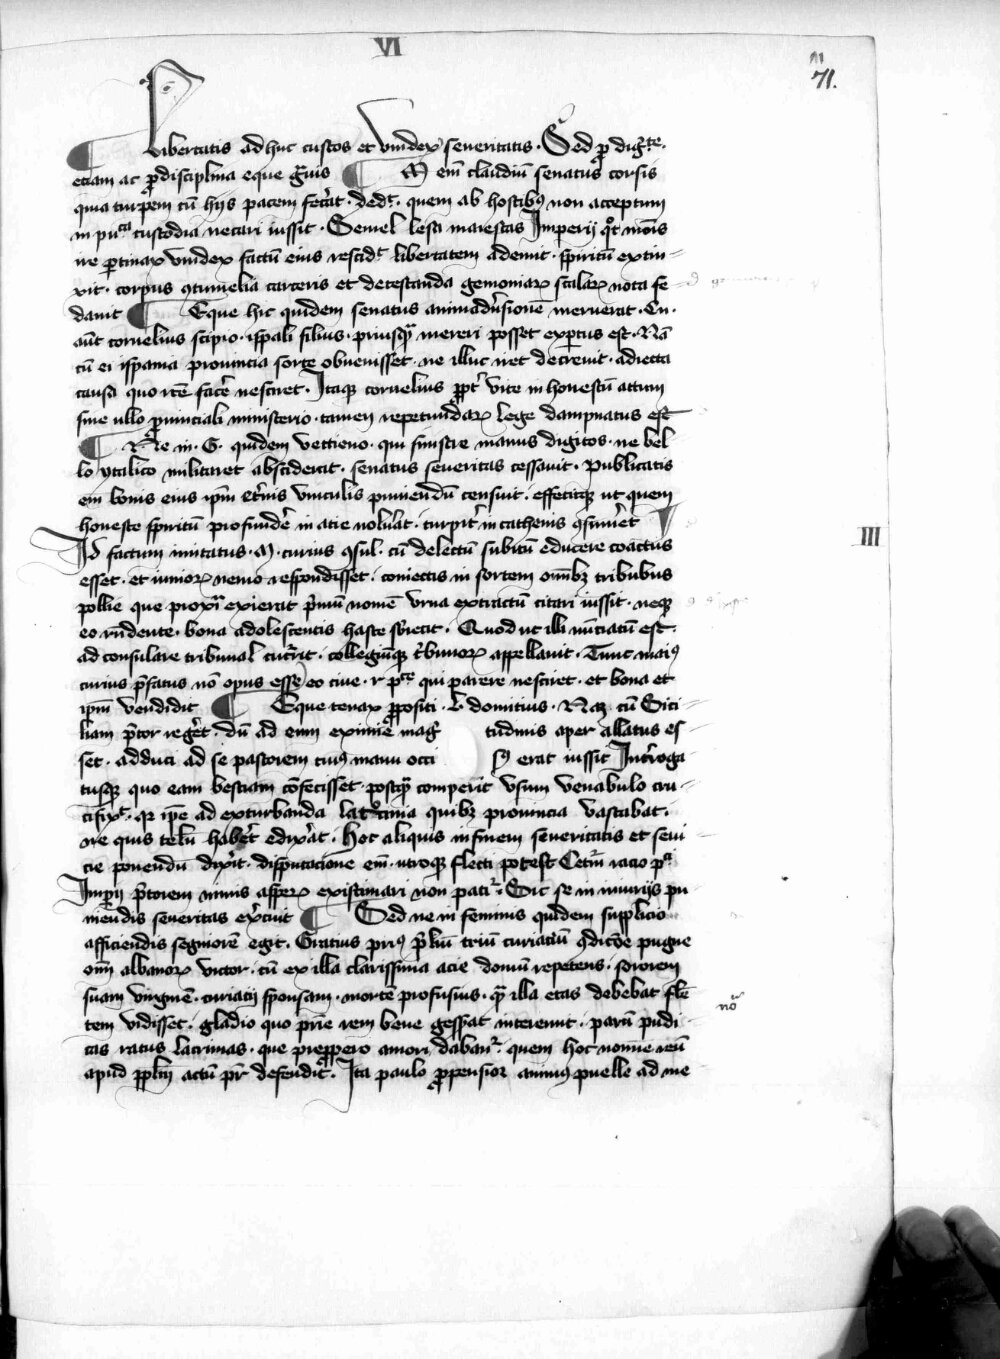 VI
71.
Libertatis adhuc custos et vindex severitatis. Sed ꝓ digͥte.
etiam ac ꝓ disciplina eque gͣuis ¶ M em̄ claudiū senatus corsis
quia turpem cū hijs pacem fecͥat. dedͭ. quem ab hostibꝰ non acceptum
in puͣca custodia necari iussit. Semel lesa maiestas Imperij qͦt mōis
ire ꝑtinax vindex factū eius rescidͭ libertatem ademit. spiritū extin-
xit. corpus ꝯtumelia carceris et detestanda gemoniaꝝ scalaꝝ nota fe
davit ¶ Eque hic quidem senatus animadūsionē meruerat. Cn.
aūt cornelius scipio. ispali filius. priusqͣ mereri posset exꝑtus est. Nā
cū ei ispania provincia sorte obvenisset. ne illuc iret decrevit. adiecta
causa quo rcē facē nesciret. Itaqꝫ cornelius ꝓpͭ vite inhonestū actum
sine ullo ꝓvinciali ministerio. tamen repetundaꝝ lege dampnatus est
¶ Ne in. G. quidem vettieno. qui sinistre manus digitos. ne bel
lo ytalico militaret absciderat. senatus severitas cessavit. Publicatis
em bonis eius ip̄m et̄nis vinculis puniendū censuit. effecitqꝫ ut quem
honeste spiritū profundē in acie noluͥat. turpitͥ in cathenis ꝯsumͥet ¶
Id factum imitatus. M. curius ꝯsul. cū delectū subitū educere coactus
esset. et iunioꝝ nemo respondisset. coniectis in sortem om̄ibꝫ tribubus
pollie que proxīa exierat pͥmū nomē urna extractū citari iussit. neqꝫ
eo rn̄dente. bona adolescentis haste sbͥiecit. Quod ut illi nūciatū est.
ad consulare tribunal cucͥrit. collegiūqꝫ tͥbunoꝝ appellavit. Tunc maiꝰ
curius p̄fatus nō opus esse eo cive. r pͭce qui parere nesciret. et bona et
ip̄m vendidit ¶ Eque tenax ꝓpositi. L. domitius. Naꝫ cū Sici
liam p̄tor regēt. dū ad eum eximie mag̅ tudinis aper allatus es
set. adduci ad se pastorem cuiꝰ manu occi sꝰ erat iussit Introga
tusqꝫ quo eam bestiam cōfecisset. postqͣ comperit usum venabulo cru-
cifixͭ. qꝛ ip̄e ad exturbanda latͦcinia quibꝫ provincia vastabat.
ne quis telū habēt edixͥat. Hoc aliquis in finem severitatis et sevi
cie ponendū dixͥit. disputacione em̄. utroqꝫ flecti potest Cetͥū racio pͣ
Imp̄ij p̄torem nimis asperꝫ existimari non patiͬ. Sic se in iniurijs pu
niēdis severitas exͥcuit ¶ Sed ne in feminis quidem supplicio
afficiendis segniorē egit. Oratius prꝰ p̄liū triū curiaciū ꝯdicōe pugne
om̄ albanoꝝ victor. cū ex illa clarissima acie domū repetens. sororem
suam virginē. curiacij sponsam. mortē profusius. qͣ illa etas debebat flē
tem vidisset. gladio quo pͥrie rem bene gesͥsat interemit. parū pudi
cas ratus lacrimas. que prepꝑo amori dabanͭ. quem hoc nomine reū
apud ppl̄m actū pͬ defenditͭ. Ita paulo ꝓpensior animꝰ puelle ad me
III
noͣ